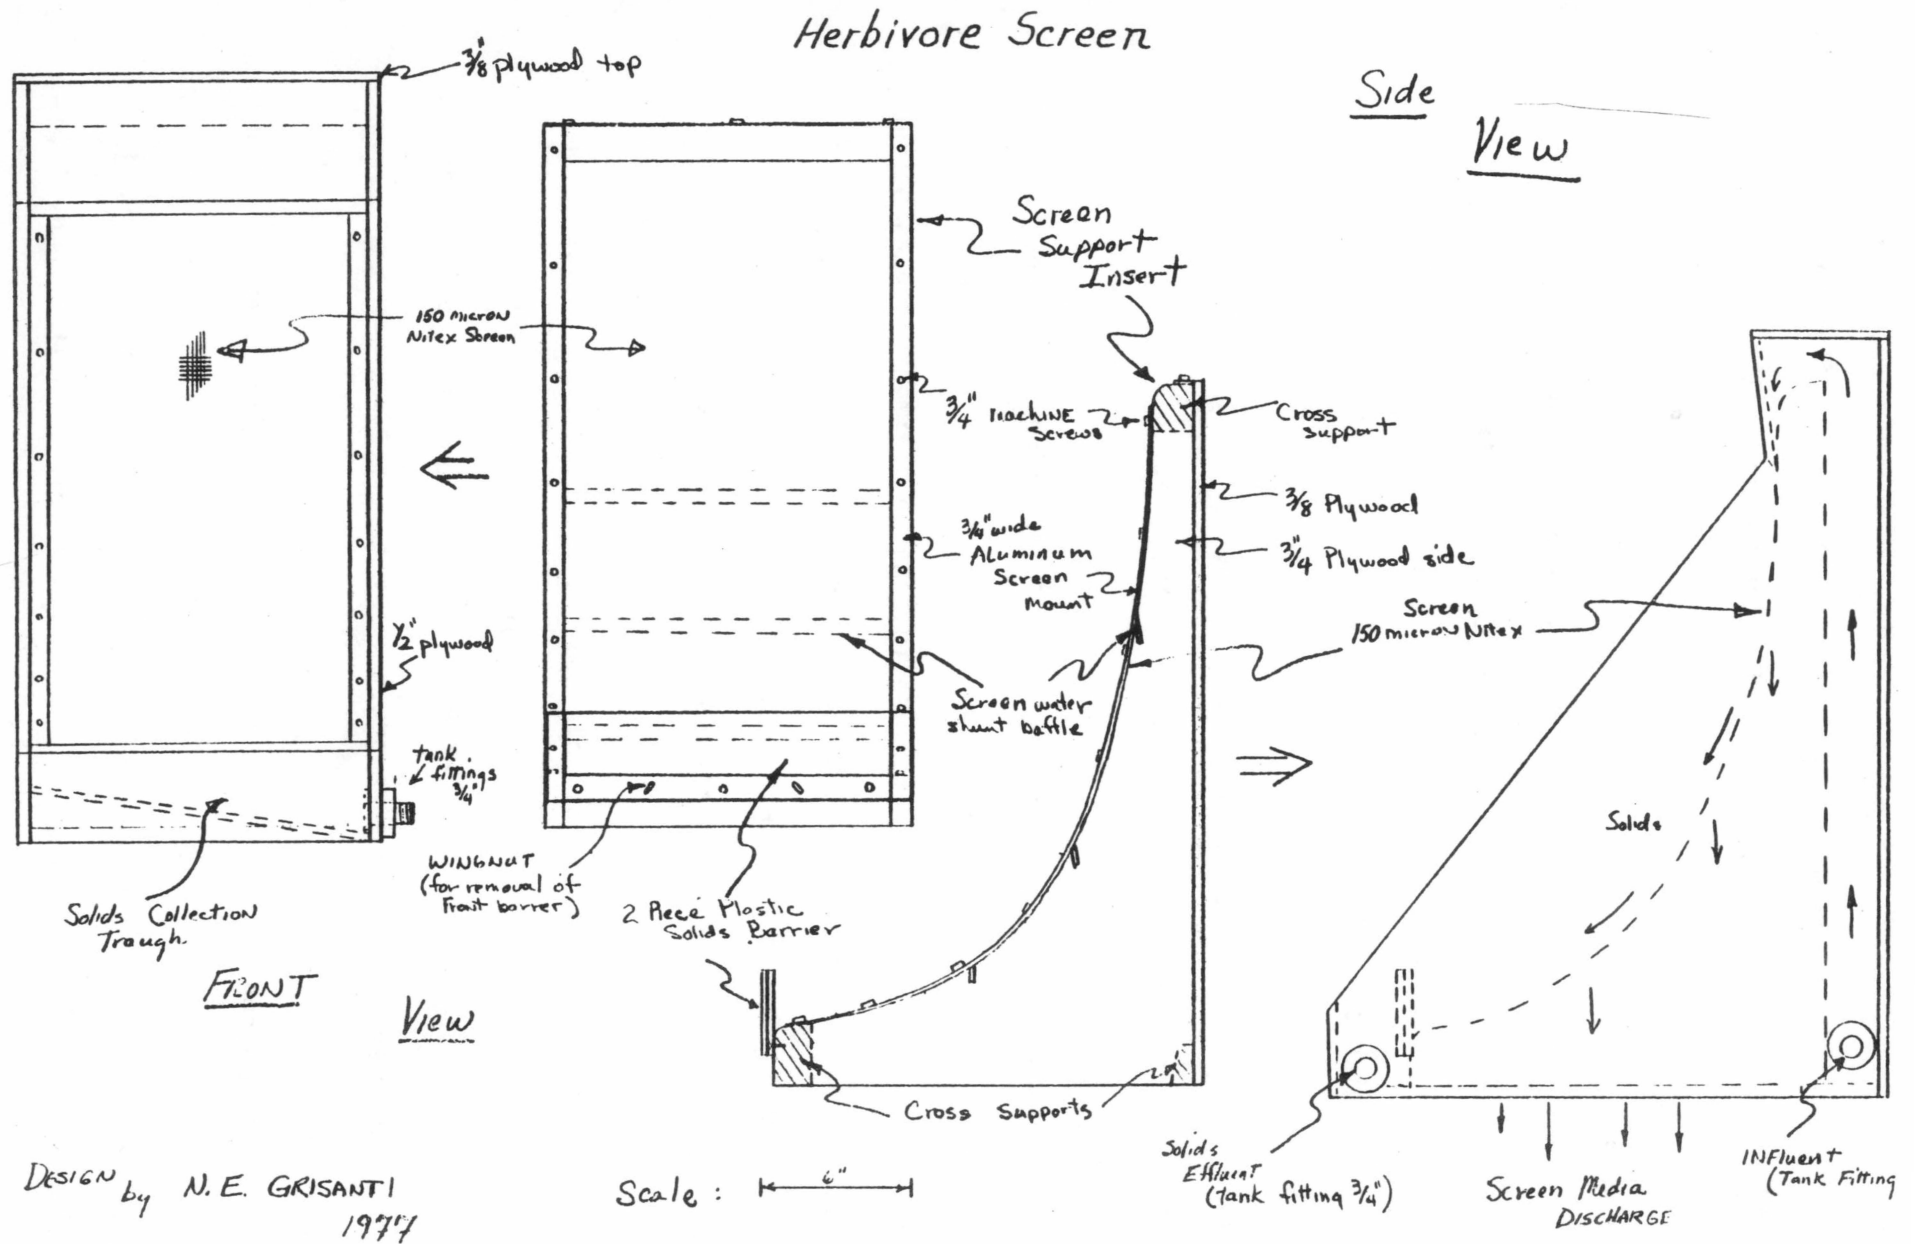 Herbivore Screen
3/8" plywood top
Side
View
Screen
Support
Insert
150 micron
Nitex Screen
3/4" Machine
Screws
Cross
support
3/8 Plywood
3/4" wide
Aluminum
Screen
mount
3/4" Plywood side
Screen
150 micron Nitex
1/2" plywood
Screen water
shunt baffle
tank
fittings
3/4"
Solids
WINGNUT
(for removal of
Front barrer)
2 Piece Plastic
Solids Barrier
Solids Collection
Trough.
FRONT
View
Cross Supports
Solids
Effluent
(tank fitting 3/4")
Screen Media
DISCHARGE
INFluent
(Tank Fitting
DESIGN by N. E. GRISANTI
1977
Scale : 6"